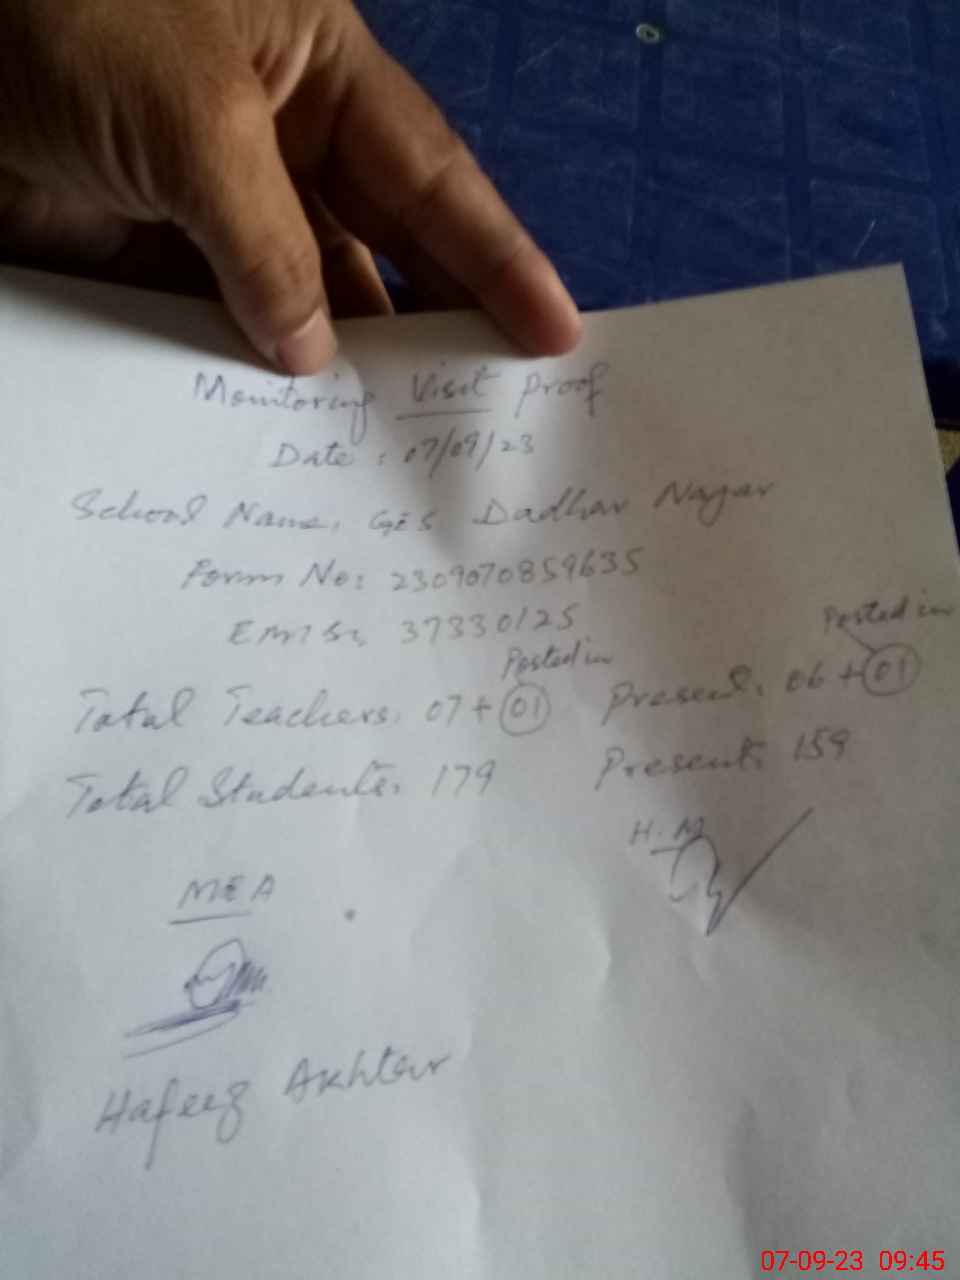 Monitoring Visit Proof
Date: 07/09/23
School Name: GES Dadhar Nagar
Form No: 2309070859635
Emis: 37330125
Posted in
Posted in
Total Teachers: 07+01 Present: 06+01
Total Students: 179 Present: 159
H.M
MEA
Hafeez Akhter
07-09-23 09:45